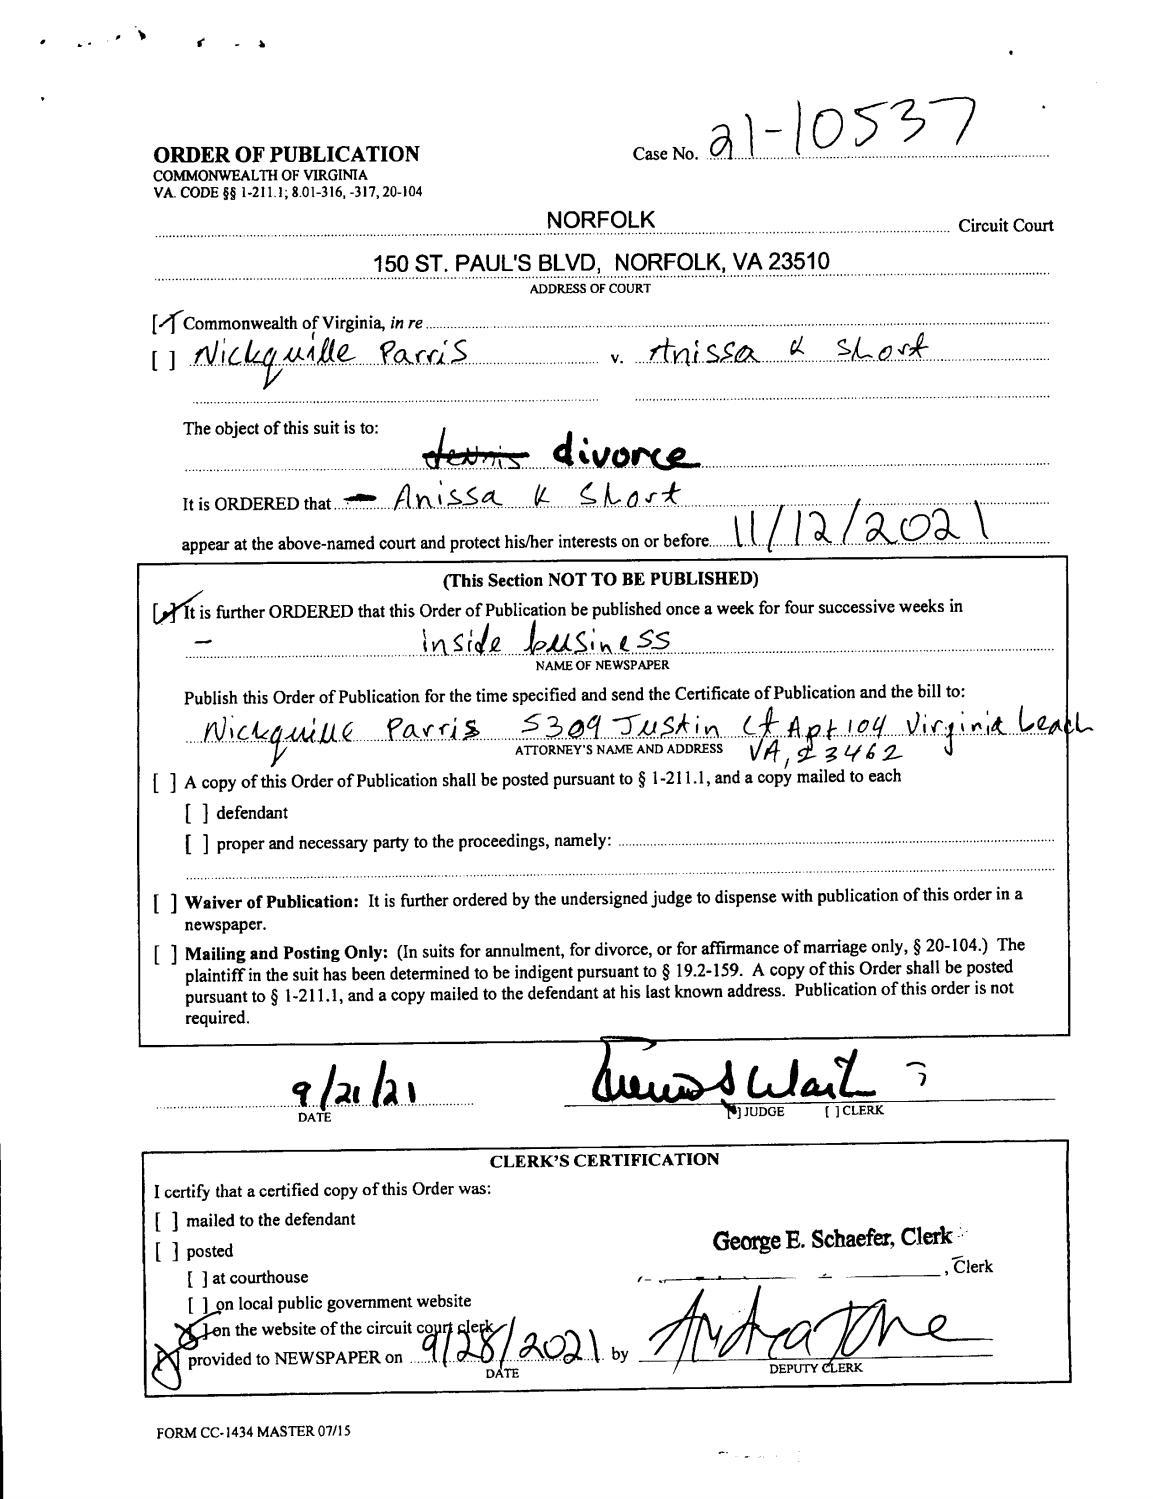 Case No. 21-10537
ORDER OF PUBLICATION
COMMONWEALTH OF VIRGINIA
VA. CODE §§ 1-211.1; 8.01-316, -317, 20-104
NORFOLK Circuit Court
150 ST. PAUL'S BLVD, NORFOLK, VA 23510
ADDRESS OF COURT
[✓] Commonwealth of Virginia, in re
[ ] Nickquille Parris v. Anissa K Short
The object of this suit is to:
divorce
It is ORDERED that Anissa K Short
appear at the above-named court and protect his/her interests on or before 11/12/2021
(This Section NOT TO BE PUBLISHED)
[✓] It is further ORDERED that this Order of Publication be published once a week for four successive weeks in
- inside business
NAME OF NEWSPAPER
Publish this Order of Publication for the time specified and send the Certificate of Publication and the bill to:
Nickquille Parris 5309 Justin Ct Apt 104 Virginia beach
ATTORNEY'S NAME AND ADDRESS VA, 23462
[ ] A copy of this Order of Publication shall be posted pursuant to § 1-211.1, and a copy mailed to each
[ ] defendant
[ ] proper and necessary party to the proceedings, namely:
[ ] Waiver of Publication: It is further ordered by the undersigned judge to dispense with publication of this order in a
newspaper.
[ ] Mailing and Posting Only: (In suits for annulment, for divorce, or for affirmance of marriage only, § 20-104.) The
plaintiff in the suit has been determined to be indigent pursuant to § 19.2-159. A copy of this Order shall be posted
pursuant to § 1-211.1, and a copy mailed to the defendant at his last known address. Publication of this order is not
required.
9/21/21
DATE
[✓] JUDGE [ ] CLERK
CLERK'S CERTIFICATION
I certify that a certified copy of this Order was:
[ ] mailed to the defendant
[ ] posted
George E. Schaefer, Clerk
, Clerk
[ ] at courthouse
[ ] on local public government website
[X] on the website of the circuit court clerk
[X] provided to NEWSPAPER on 9/28/2021 by
DATE
DEPUTY CLERK
FORM CC-1434 MASTER 07/15